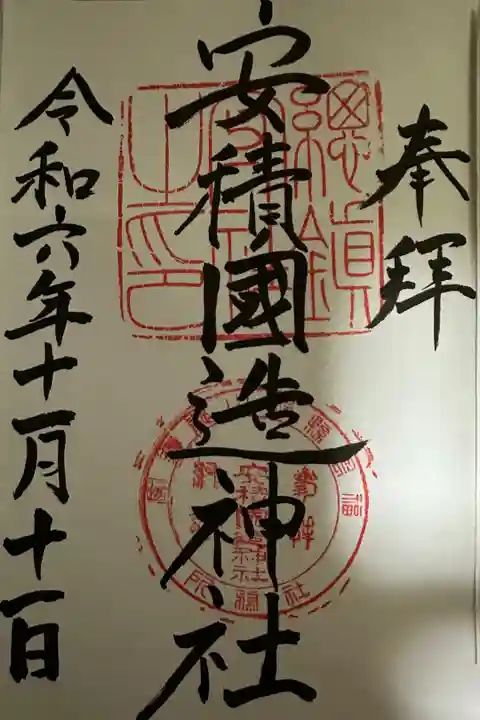 奉拜
安積國造神社
令和六年十一月十一日
總鎮